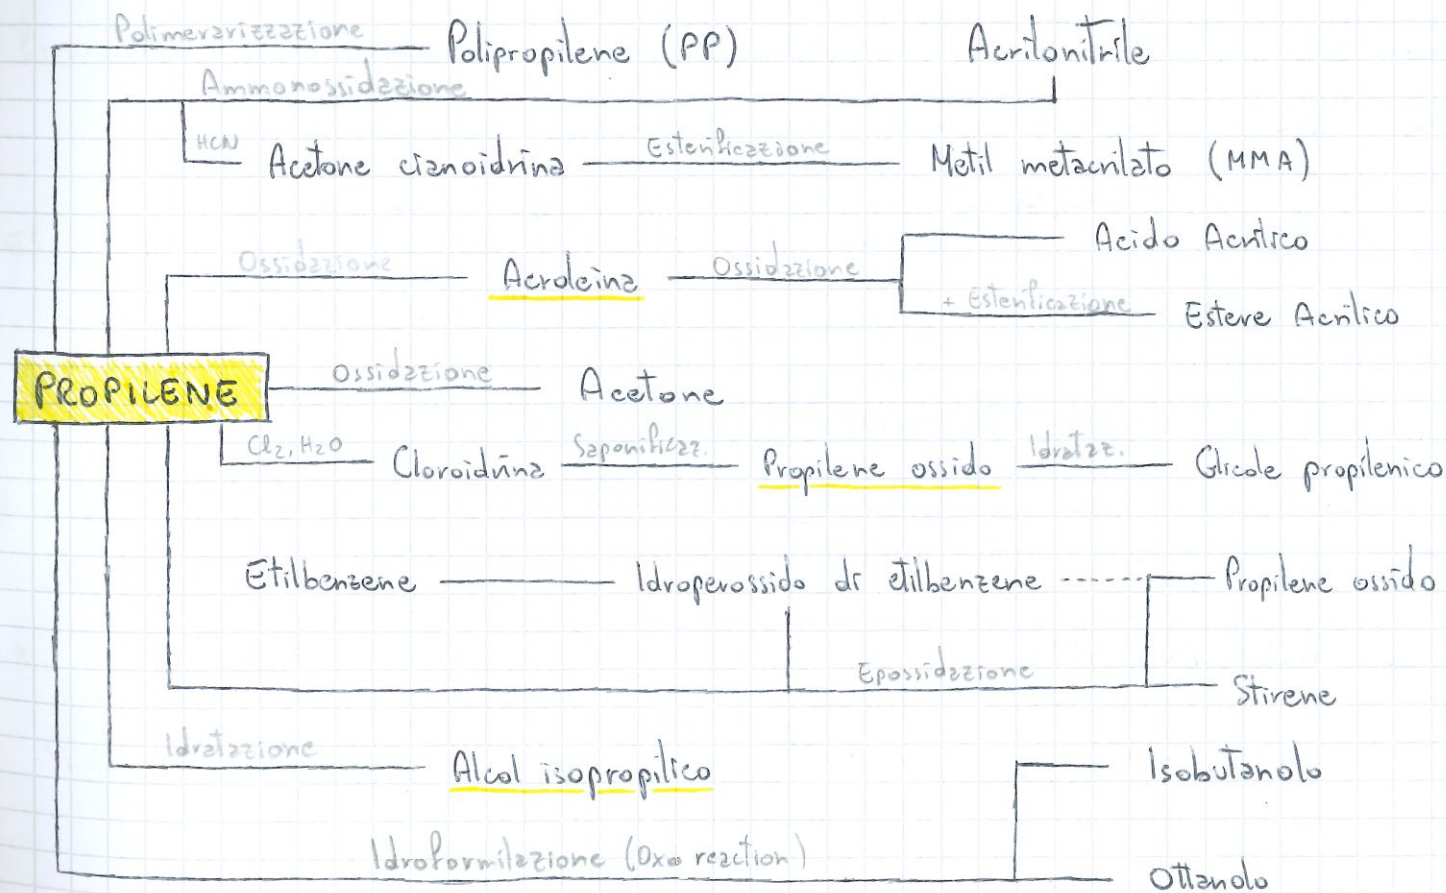 Polimerarizzazione
Polipropilene (PP)
Acrilonitrile
Ammonossidazione
HCN
Acetone cianoidrina
Esterificazione
Metil metacrilato (MMA)
Acido Acrilico
Ossidazione
Acroleina
Ossidazione
+ Esterificazione
Estere Acrilico
PROPILENE
Ossidazione
Acetone
Cl2, H2O
Cloroidrina
Saponificaz.
Propilene ossido
Idrataz.
Glicole propilenico
Etilbenzene
Idroperossido di etilbenzene
Propilene ossido
Epossidazione
Stirene
Idratazione
Alcol isopropilico
Isobutanolo
Idroformilazione (Oxo reaction)
Ottanolo